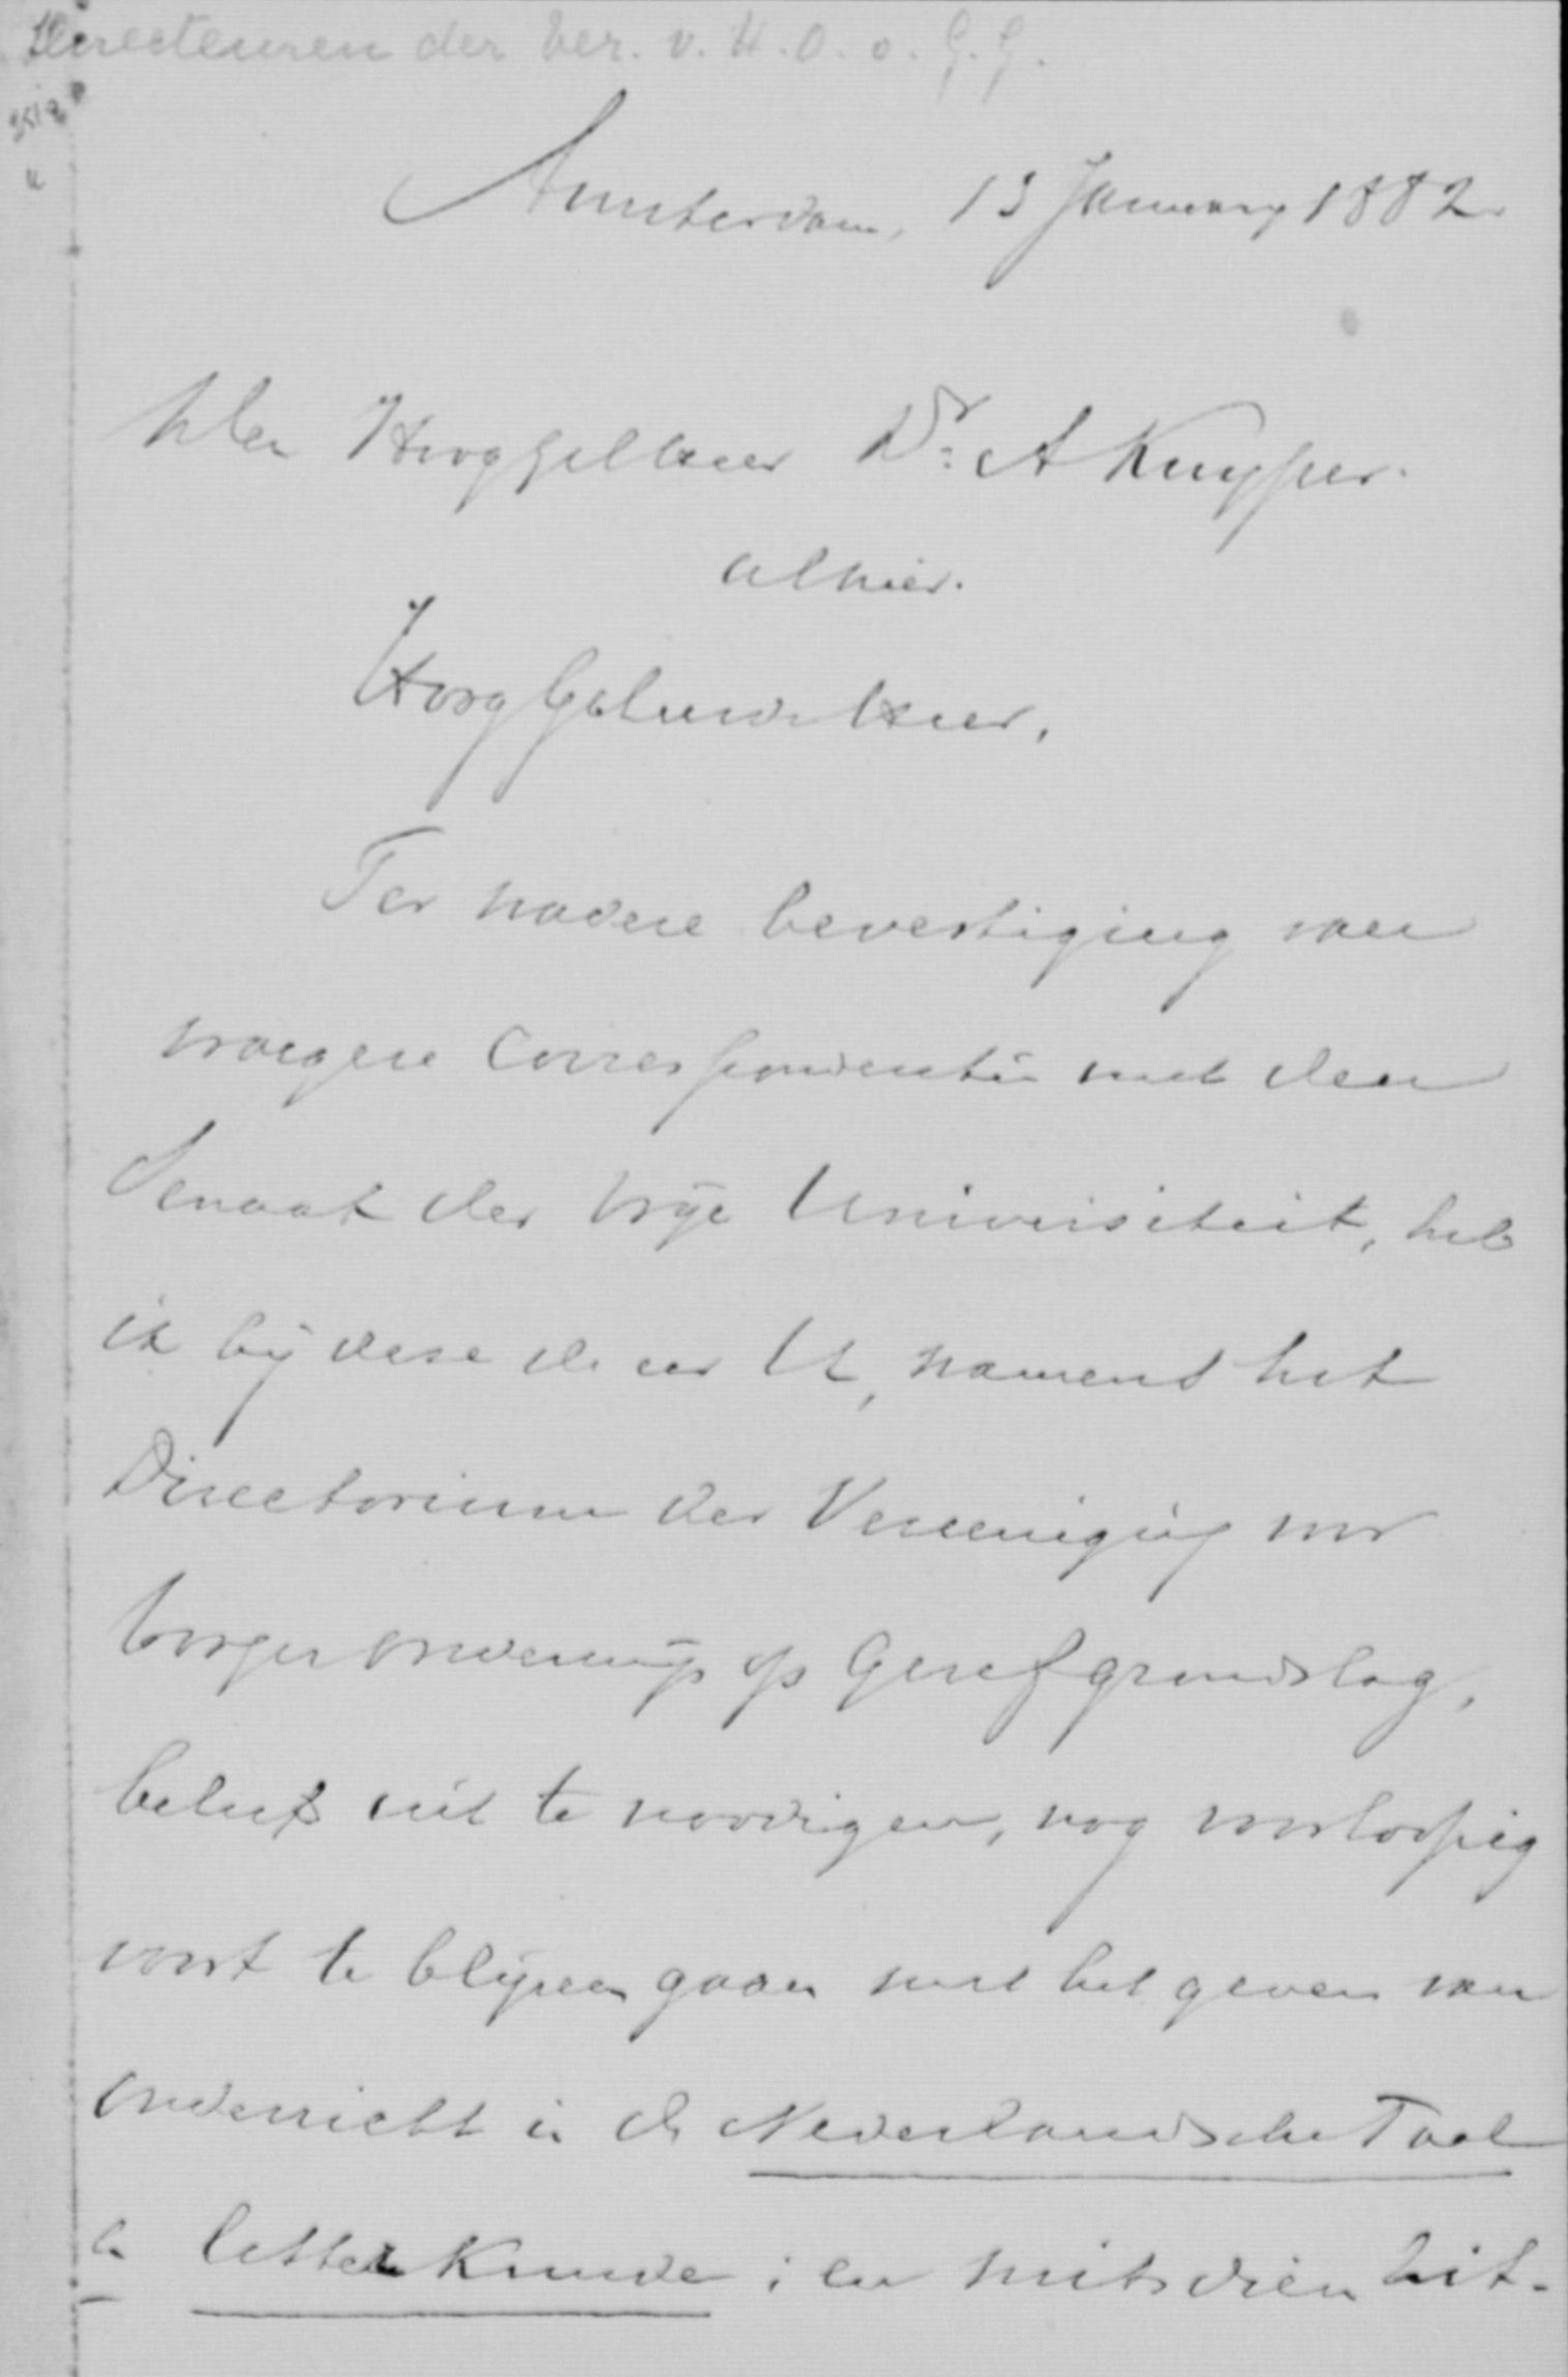 Directeuren der Ver. v. H. O. o. G. G.
Amsterdam, 13 January 1882
Den HoogGel Heer Dr. A Kuyper.
alhier.
HoogGeleerde Heer,
Ter nadere bevestiging van
vroegere Correspondentie met den
Senaat der Vrije Universiteit, heb
ik bij deze de eer U, namens het
Directorium der Vereeniging voor
hooger onderwijs op Geref grondslag,
beleefd uit te noodigen, nog voorloopig
voort te blijven gaan met het geven van
onderricht in de Nederlandsche Taal
& letterkunde; en mitsdien uit-